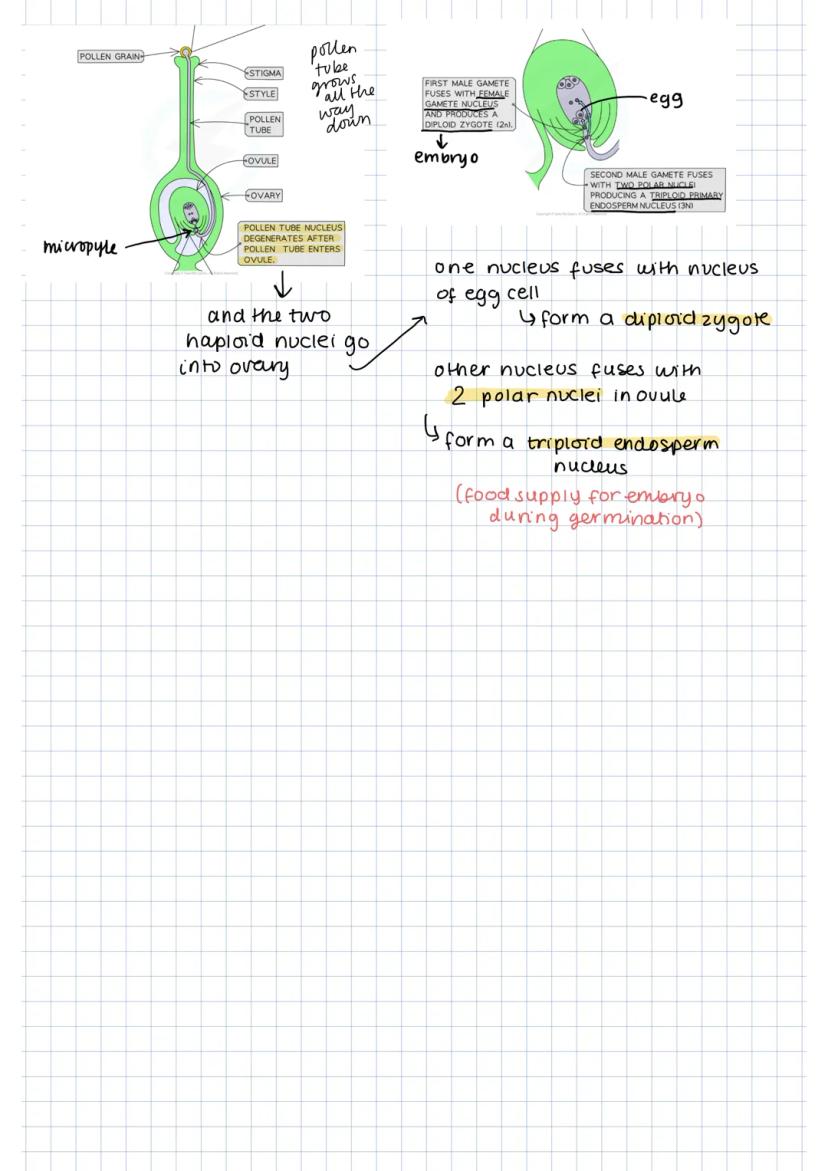 POLLEN GRAIN
STIGMA
STYLE
POLLEN
TUBE
OVULE
OVARY
POLLEN TUBE NUCLEUS
DEGENERATES AFTER
POLLEN TUBE ENTERS
OVULE.
micropyle
pollen
tube
grows
all the
way
down
and the two
haploid nuclei go
into ovary
FIRST MALE GAMETE
FUSES WITH FEMALE
GAMETE NUCLEUS
AND PRODUCES A
DIPLOID ZYGOTE (2n).
embryo
egg
SECOND MALE GAMETE FUSES
WITH TWO POLAR NUCLEI
PRODUCING A TRIPLOID PRIMARY
ENDOSPERM NUCLEUS (3N)
one nucleus fuses with nucleus
of egg cell
↳ form a diploid zygote
other nucleus fuses with
2 polar nuclei in ovule
↳ form a triploid endosperm
nucleus
(food supply for embryo
during germination)